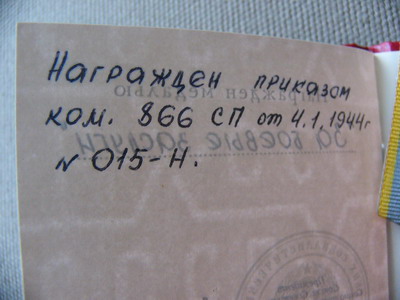 Награжден приказом
ком. 866 СП от 4.1.1944г
N 015-Н.